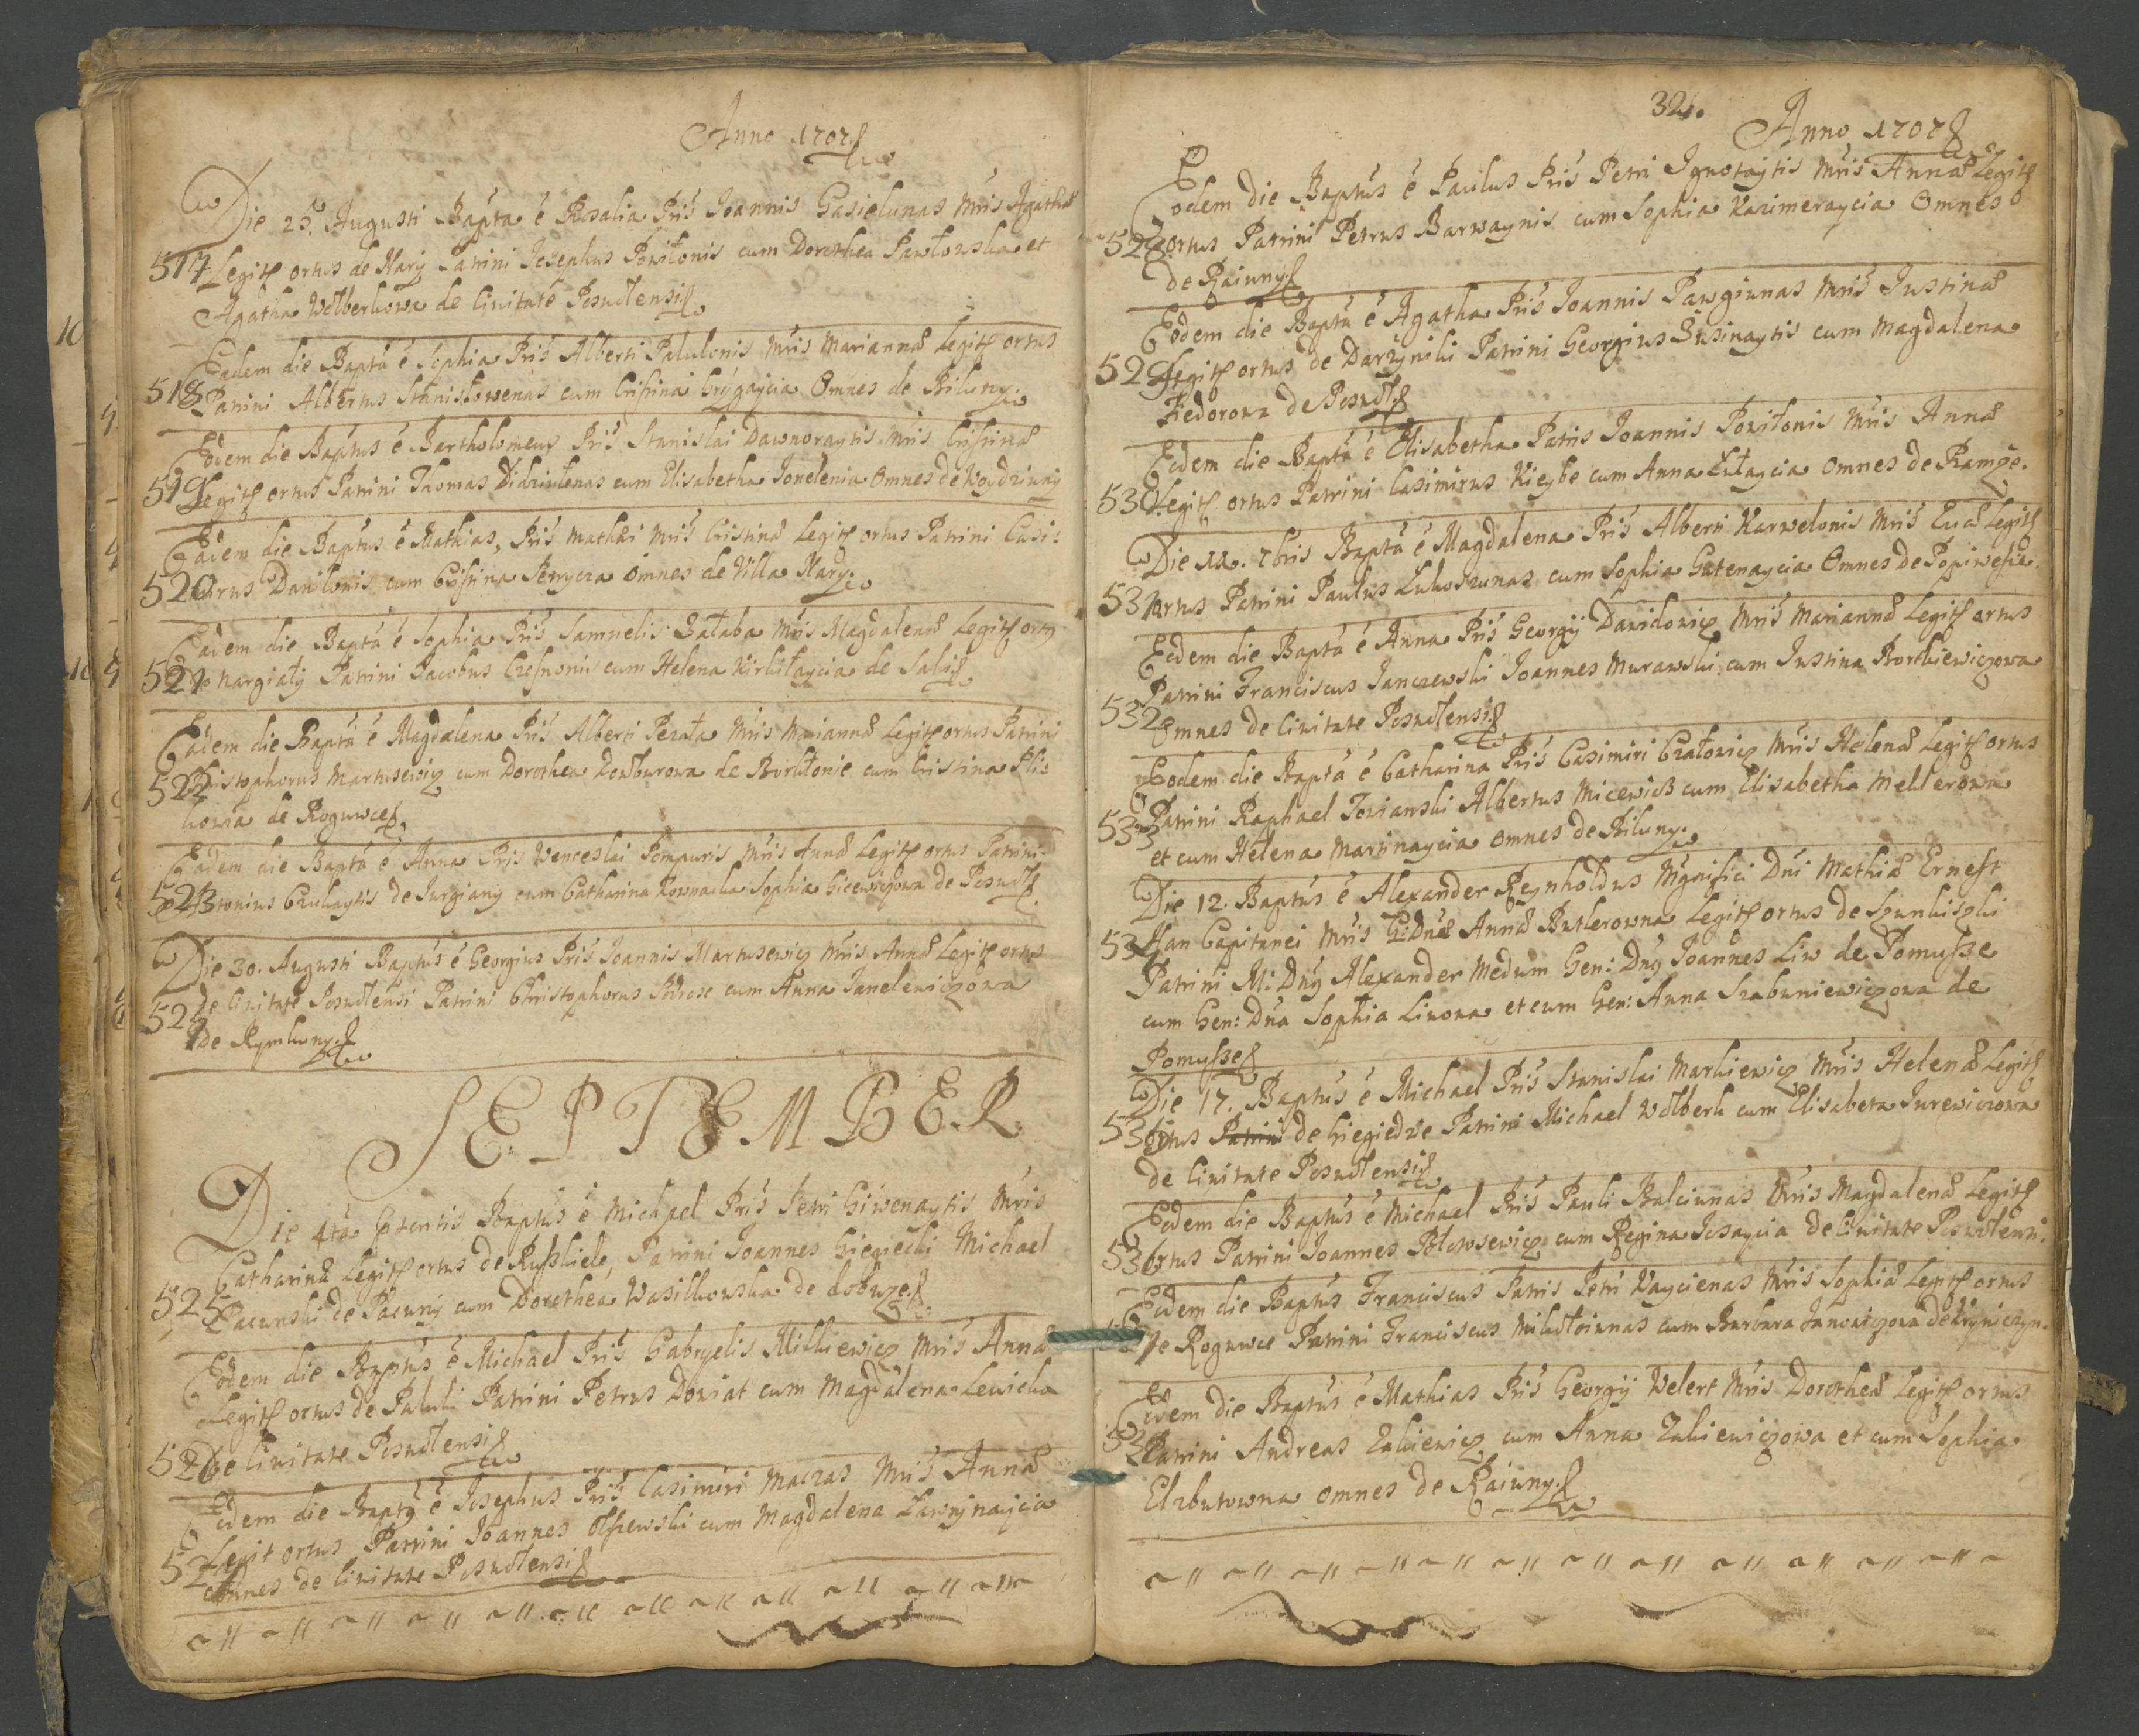 Anno 1707
Die 25. Augusti Bapta è Rosalia Pris Joannis Gasielunas Mris Agathæ
517 Legit ortus de Nary Patrini Josephus Powiłonis cum Dorothea Pawłowska et
Agatha Wolberkowa de Civitate Posvolensi
Eadem die Bapta è Sophia Pris Alberti Palulonis Mris Mariannæ Legit ortus
518 Patrini Albertus Stanisłowenas cum Cristina Grygaycia Omnes de Biluny
Eodem die Baptus è Bartholomeus Pris Stanislai Dawnoraytis Mris Cristinæ
519 Legit ortus Patrini Thomas Didziulenas cum Elisabetha Jonelenia Omnes de Woydziuny
Eadem die Baptus è Mathias, Pris Mathæi Mris Cristinæ Legit ortus Patrini Casi:
520 mirus Daniłonis cum Cristina Petrycza Omnes de Villa Nary
Eadem die Bapta è Sophia Pris Samuelis Sałaba Mris Magdalenæ Legit ortus
521 de Nargiały Patrini Jacobus Czesnonis cum Helena Kirkiłaycia de Sali
Eadem die Bapta è Magdalena Pris Alberti Perata Mris Mariannæ Legit ortus Patrini
522 Christophorus Martusewicz cum Dorothea Dowburowa de Burkłonie cum Cristina Plis
kowia de Roguwce
Eadem die Bapta è Anna Pris Venceslai Pompuris Mris Annæ Legit ortus Patrini
523 Antonius Czukaytis de Jurgiany cum Catharina Kownacka Sophia Gicewiczowa de Posvol
Die 30. Augusti Baptus è Georgius Pris Joannis Martusewicz Mris Annæ Legit ortus
de Civitate Posvolensi Patrini Christophorus Podrose cum Anna Janelewiczowa
524 de Rymkuny
SEPTEMBER
Die 4ta Baptus è Michael Pris Petri Giwenaytis Mris
Catharinæ Legit ortus de Ryszkiele, Patrini Joannes Giegiecki Michael
525 Pacunski de Pacuny cum Dorothea Wasilkowska de
Eodem die Baptus è Michael Pris Gabryelis Milkiewicz Mris Annæ
Legit ortus de Paluki Patrini Petrus Dowiat cum Magdalena Lewicka
526 de Civitate Posvolensi
Eodem die Baptus è Josephus Pris Casimiri Maczas Mris Annæ
Legit ortus Patrini Joannes Olszewski cum Magdalena Ławrynaycia
527 Omnes de Civitate Posvolensi
321. Anno 1707
Eodem die Baptus è Paulus Pris Petri Ignotaytis Mris Annæ Legit
528 ortus Patrini Petrus Barwaynis cum Sophia Kazimeraycia Omnes
de Raiuny
Eodem die Bapta è Agatha Pris Joannis Pawgiunas Mris Justinæ
529 Legit ortus de Darżyniki Patrini Georgius Susinaytis cum Magdalena
Fiedorowa de Posvol
Eodem die Bapta è Elisabetha Patris Joannis Powiłonis Mris Annæ
530 Legit ortus Patrini Casimirus Kieybe cum Anna Lutaycia Omnes de Ramże.
Die 11. 7bris Bapta è Magdalena Pris Alberti Karwelonis Mris Evæ Legit
531 ortus Patrini Paulus Lukoszunas cum Sophia Gutenaycia Omnes de Popiwesie.
Eodem die Bapta è Anna Pris Georgij Dawidowicz Mris Mariannæ Legit ortus
Patrini Franciscus Janczewski Joannes Murawski cum Justina Borkiewiczowa
532 Omnes de Civitate Posvolensi
Eodem die Bapta è Catharina Pris Casimiri Czatowicz Mris Helenæ Legit ortus
533 Patrini Raphael Towianski Albertus Micewicz cum Elisabetha Mellerowa
et cum Helena Martinaycia Omnes de Biluny
Die 12. Baptus è Alexander Reynholdus Mgnifici Dni Mathiæ Ernest
534 Han Capitanei Mris G: Dnæ Annæ Butlerowna Legit ortus de Szunkiszki
Patrini M: Dny Alexander Medum Gen: Dny Joannes Liw de Pomusze
cum Gen: Dna Sophia Liwowa et cum Gen: Anna Szabuniewiczowa de
Pomusze
Die 17. Baptus è Michael Pris Stanislai Markiewicz Mris Helenæ Legit
535 ortus Patrini de Giegiedzie Patrini Michael Wolberk cum Elisabeta Jurewiczowa
de Civitate Posvolensi
Eodem die Baptus è Michael Pris Pauli Balciunas Mris Magdalenæ Legit
536 ortus Patrini Joannes Blowsewicz cum Regina Josaycia de Civitate Posvolensi
Eodem die Baptus Franciscus Patris Petri Vaycienas Mris Sophiæ Legit ortus
de Roguwce Patrini Franciscus Mikołoiunas cum Barbara Janowiczowa de Kryniczyn.
Eodem die Baptus è Mathias Pris Georgij Welert Mris Dorotheæ Legit ortus
Patrini Andreas Zakiewicz cum Anna Zakiewiczowa et cum Sophia
Elzbutowna Omnes de Raiuny